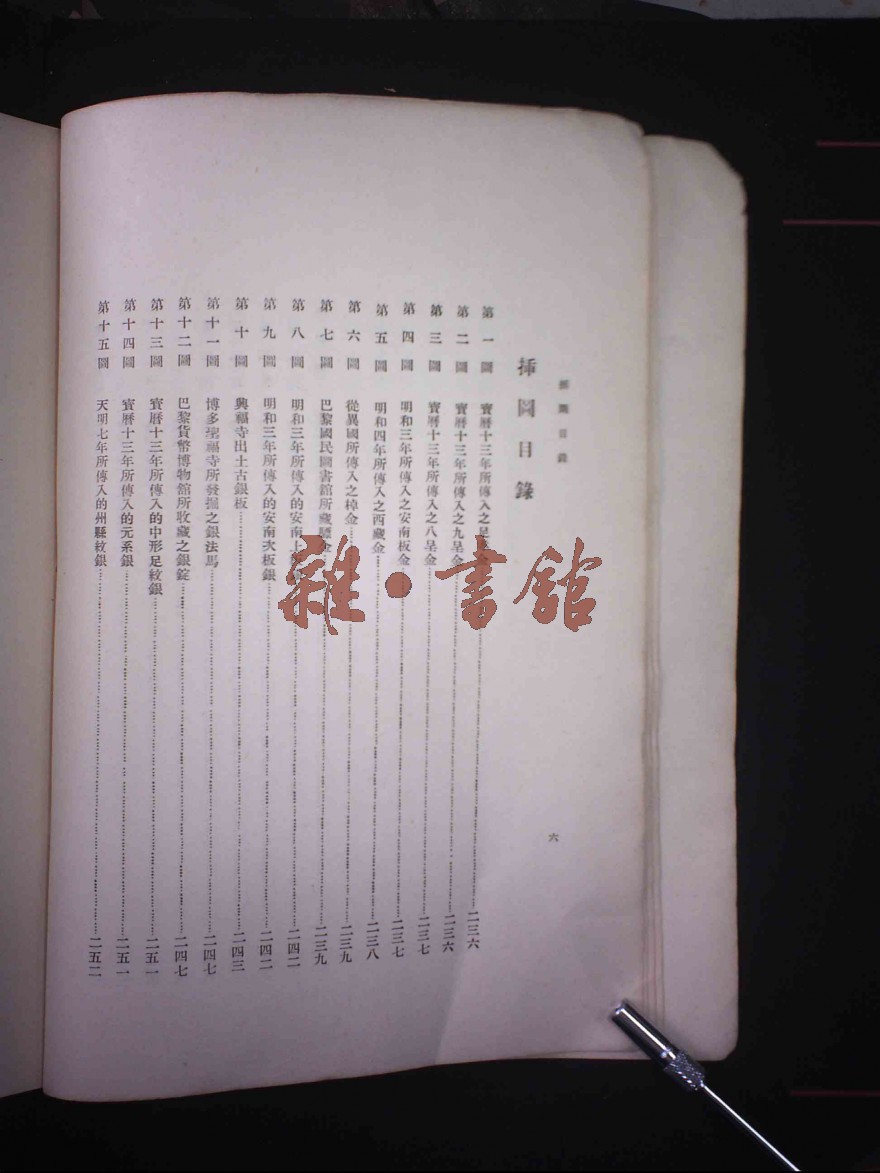 插圖目錄
六
插圖目錄
第一圖 寶曆十三年所傳入之足 金……二三六
第二圖 寶曆十三年所傳入之九呈金……二三六
第三圖 寶曆十三年所傳入之八呈金……二三七
第四圖 明和三年所傳入之安南板金……二三七
第五圖 明和四年所傳入之西藏金……二三八
第六圖 從異國所傳入之棹金……二三九
第七圖 巴黎國民圖書館所藏 金……二三九
第八圖 明和三年所傳入的安南上……二四二
第九圖 明和三年所傳入的安南次板銀……二四二
第十圖 興福寺出土古銀板……二四三
第十一圖 博多聖福寺所發掘之銀法馬……二四七
第十二圖 巴黎貨幣博物館所收藏之銀錠……二四七
第十三圖 寶曆十三年所傳入的中形足紋銀……二五一
第十四圖 寶曆十三年所傳入的元系銀……二五一
第十五圖 天明七年所傳入的州縣紋銀……二五二
雜·書館